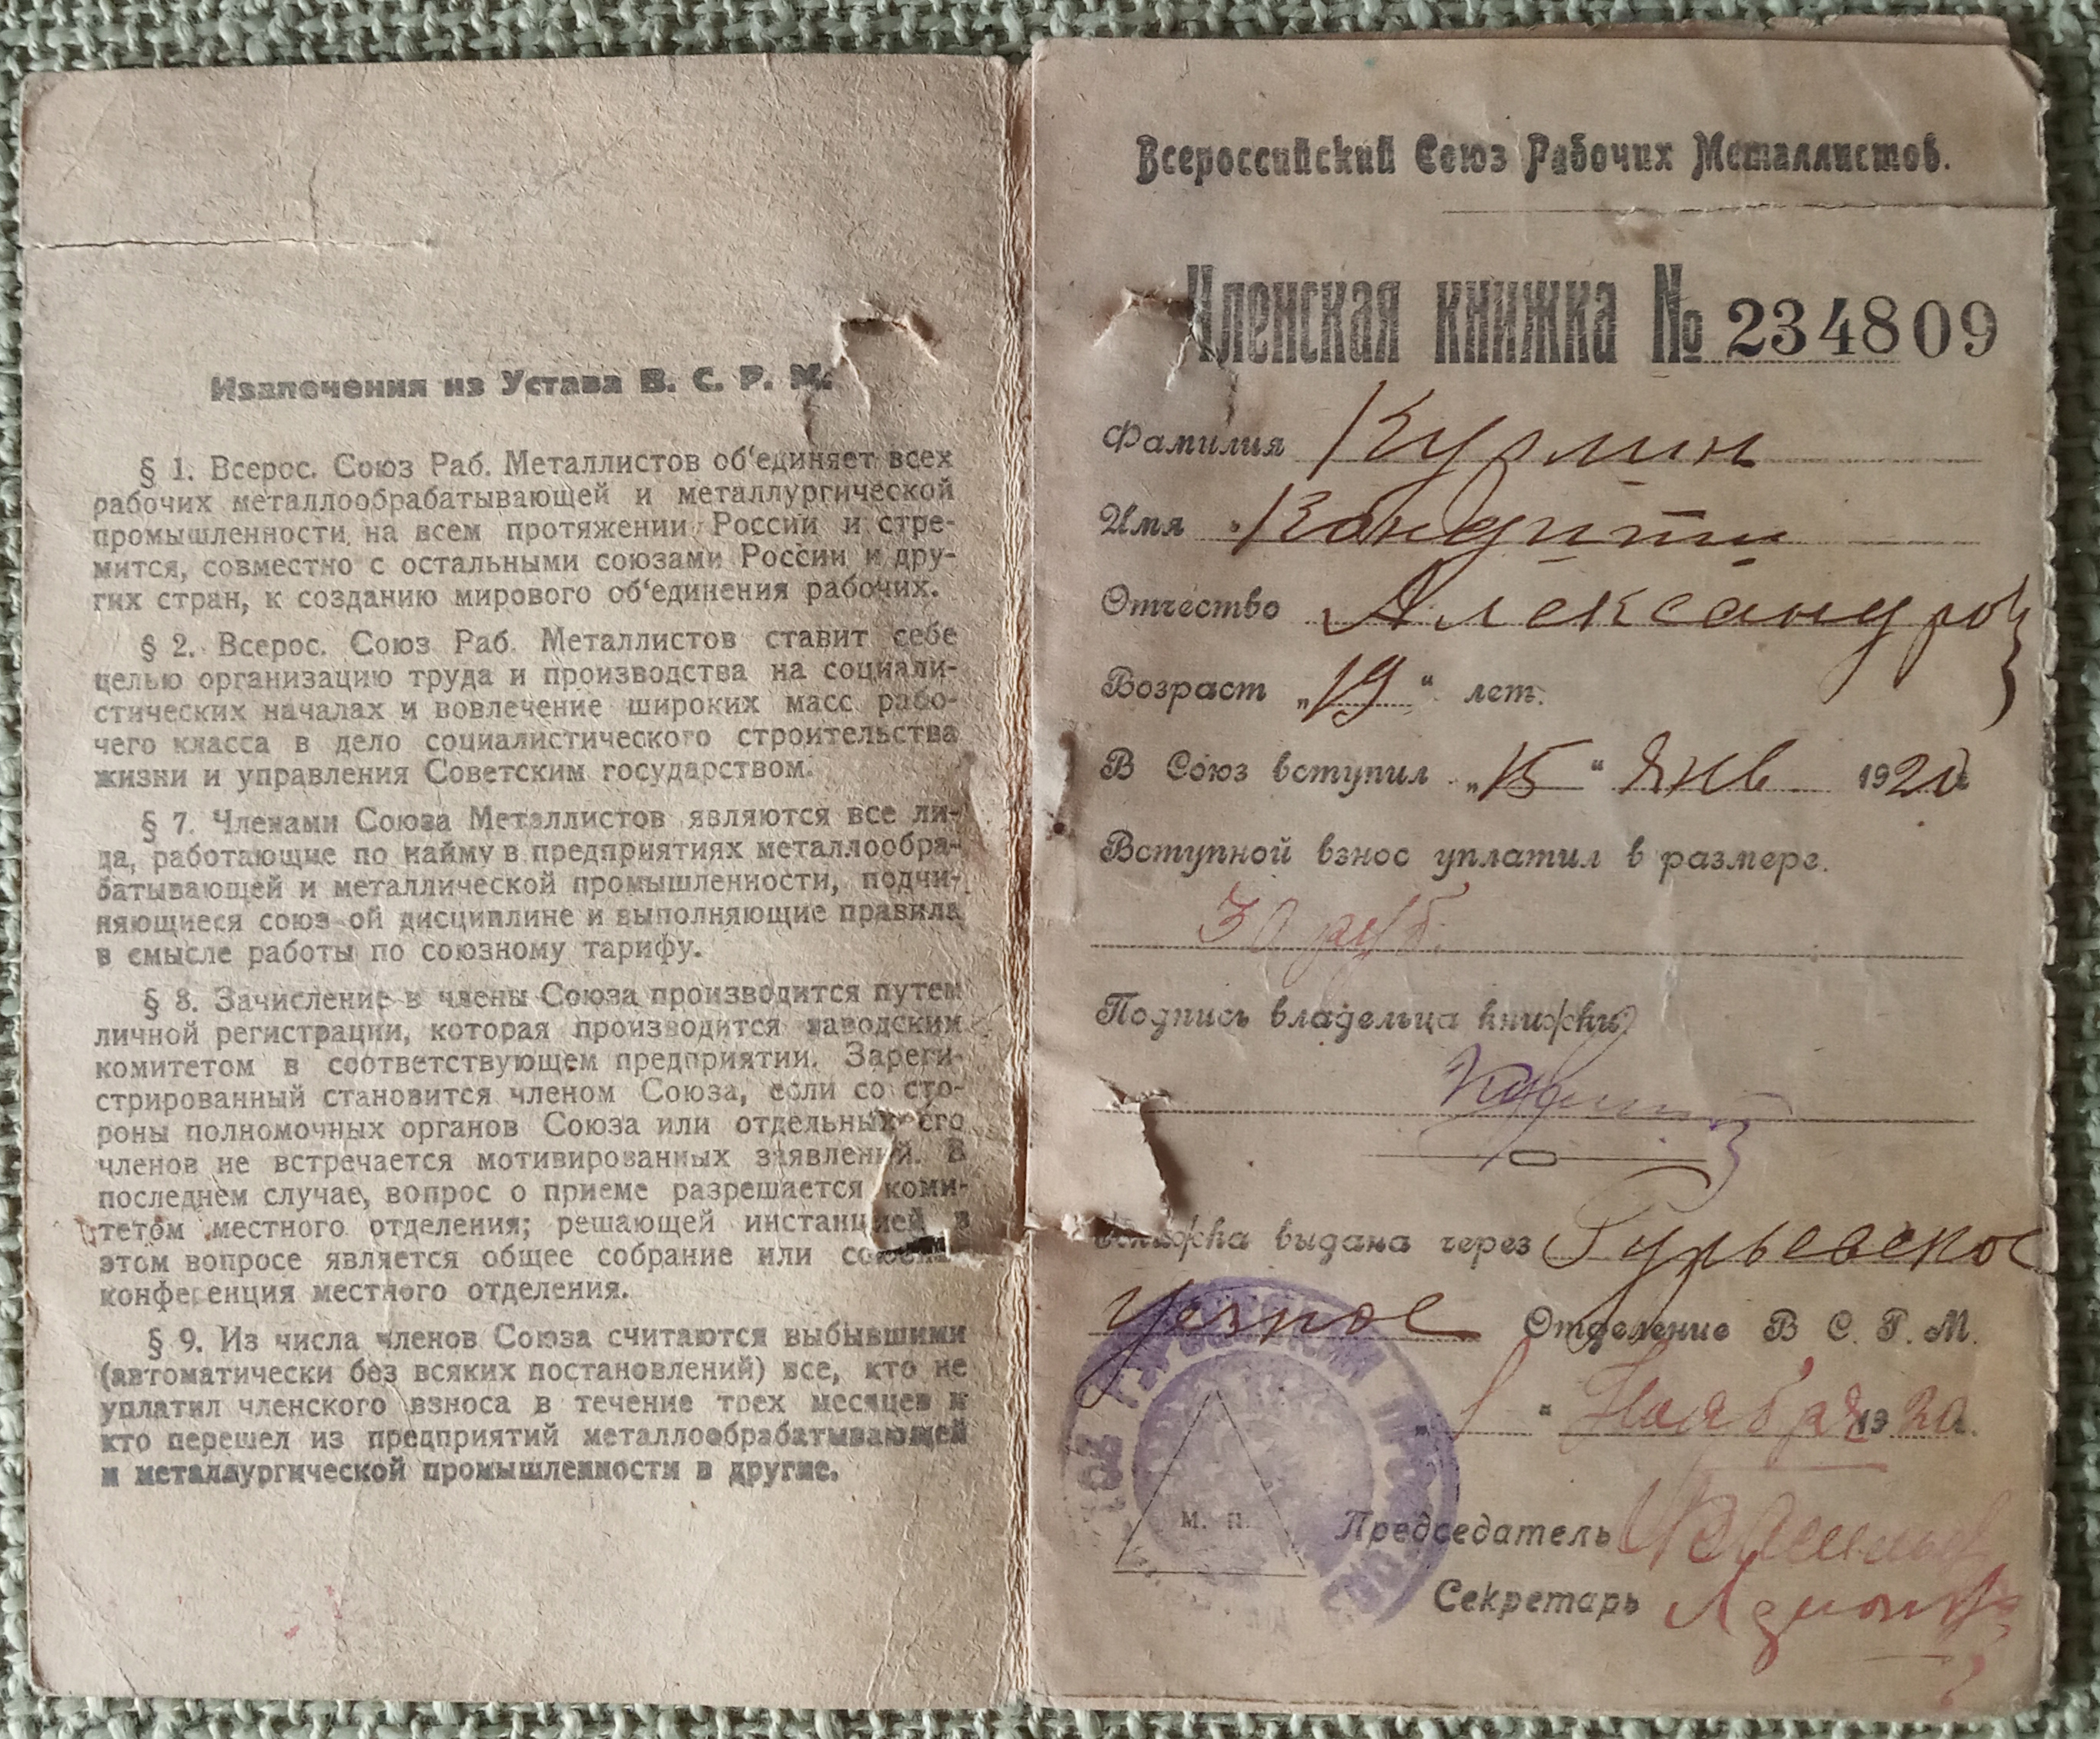 Извлечения из Устава В. С. Р. М.
§ 1. Всерос. Союз Раб. Металлистов об‘единяет всех
рабочих металлообрабатывающей и металлургической
промышленности на всем протяжении России и стре-
мится, совместно с остальными союзами России и дру-
гих стран, к созданию мирового об‘единения рабочих.
§ 2. Всерос. Союз Раб. Металлистов ставит себе
целью организацию труда и производства на социали-
стических началах и вовлечение широких масс рабо-
чего класса в дело социалистического строительства
жизни и управления Советским государством.
§ 7. Членами Союза Металлистов являются все ли-
ца, работающие по найму в предприятиях металлообра-
батывающей и металлической промышленности, подчи-
няющиеся союз ой дисциплине и выполняющие правила
в смысле работы по союзному тарифу.
§ 8. Зачисление в члены Союза производится путем
личной регистрации, которая производится заводским
комитетом в соответствующем предприятии. Зареги-
стрированный становится членом Союза, если со сто-
роны полномочных органов Союза или отдельных его
членов не встречается мотивированных заявлений. В
последнем случае, вопрос о приеме разрешается коми-
тетом местного отделения; решающей инстанцией в
этом вопросе является общее собрание или
конференция местного отделения.
§ 9. Из числа членов Союза считаются выбывшими
(автоматически без всяких постановлений) все, кто не
уплатил членского взноса в течение трех месяцев и
кто перешел из предприятий металлообрабатывающей
и металлургической промышленности в другие.
Всероссийский Союз Рабочих Металлистов.
Членская книжка № 234809
Фамилия Курлин
Имя Кондитти
Отчество Александров
Возраст „19“ лет.
В Союз вступил „15“ Янв 1920г.
Вступной взнос уплатил в размере.
30 руб.
Подпись владельца книжки
Книжка выдана через Гурьевское
Уезное Отделение В С. Р. М.
„1“ Ноября 1920г.
М. П.
Председатель
Секретарь